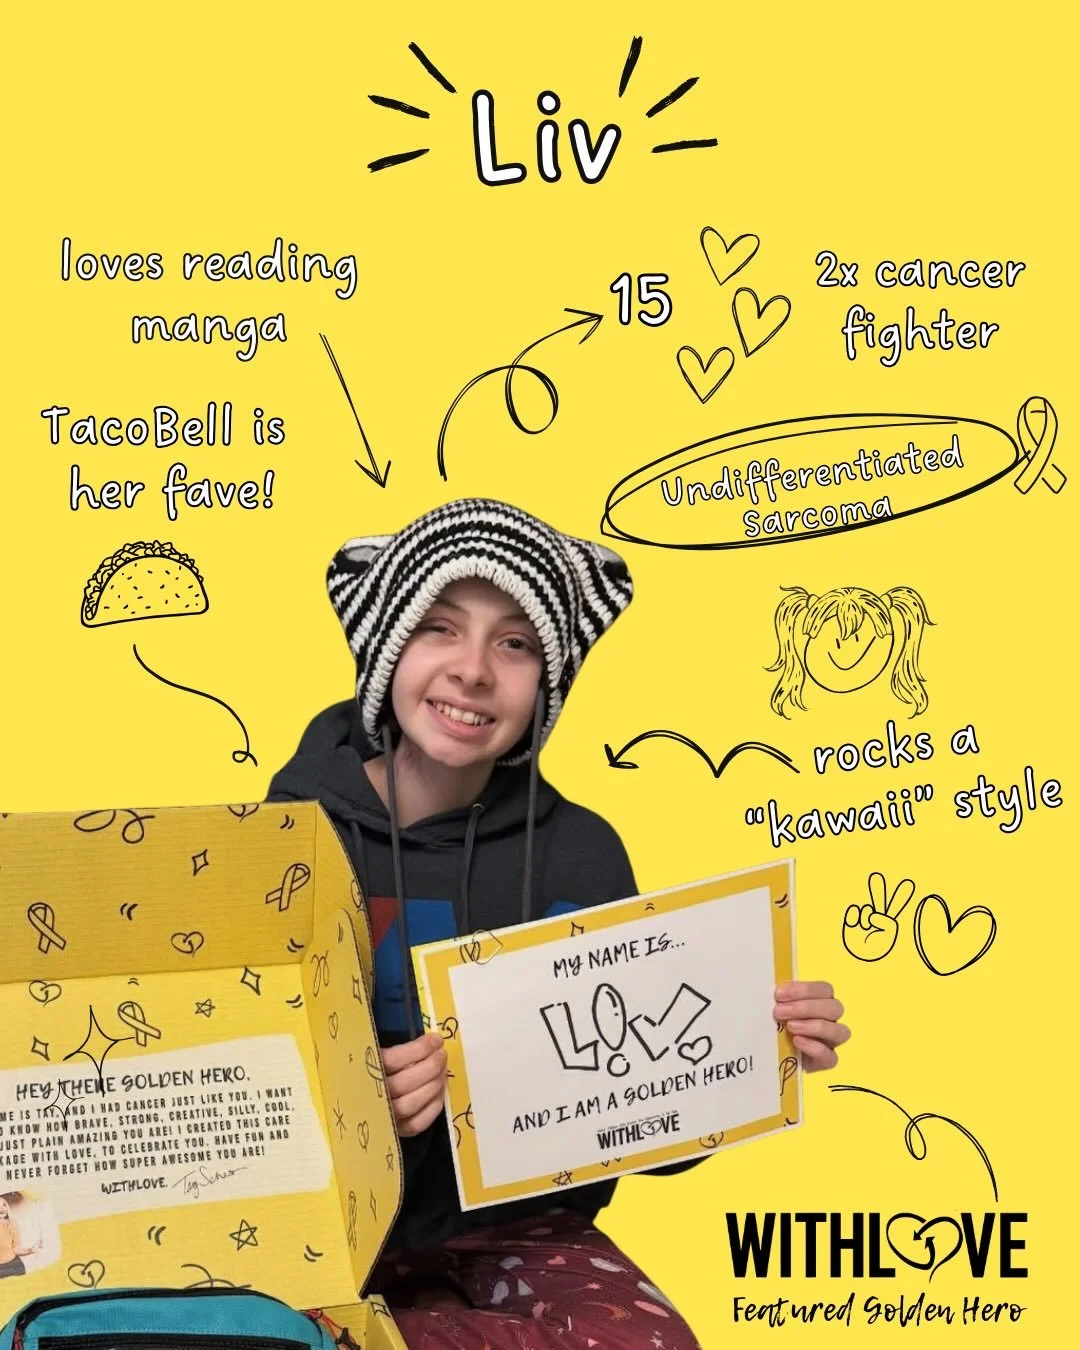 Liv
loves reading
manga
15
2x cancer
fighter
TacoBell is
her fave!
Undifferentiated
Sarcoma
rocks a
"kawaii" style
MY NAME IS...
LIV!
AND I AM A GOLDEN HERO!
WITHLOVE
HEY THERE GOLDEN HERO,
ME IS TAY, AND I HAD CANCER JUST LIKE YOU. I WANT
KNOW HOW BRAVE, STRONG, CREATIVE, SILLY, COOL,
JUST PLAIN AMAZING YOU ARE! I CREATED THIS CARE
KAGE WITH LOVE, TO CELEBRATE YOU. HAVE FUN AND
NEVER FORGET HOW SUPER AWESOME YOU ARE!
WITHLOVE,
WITHLOVE
Featured Golden Hero